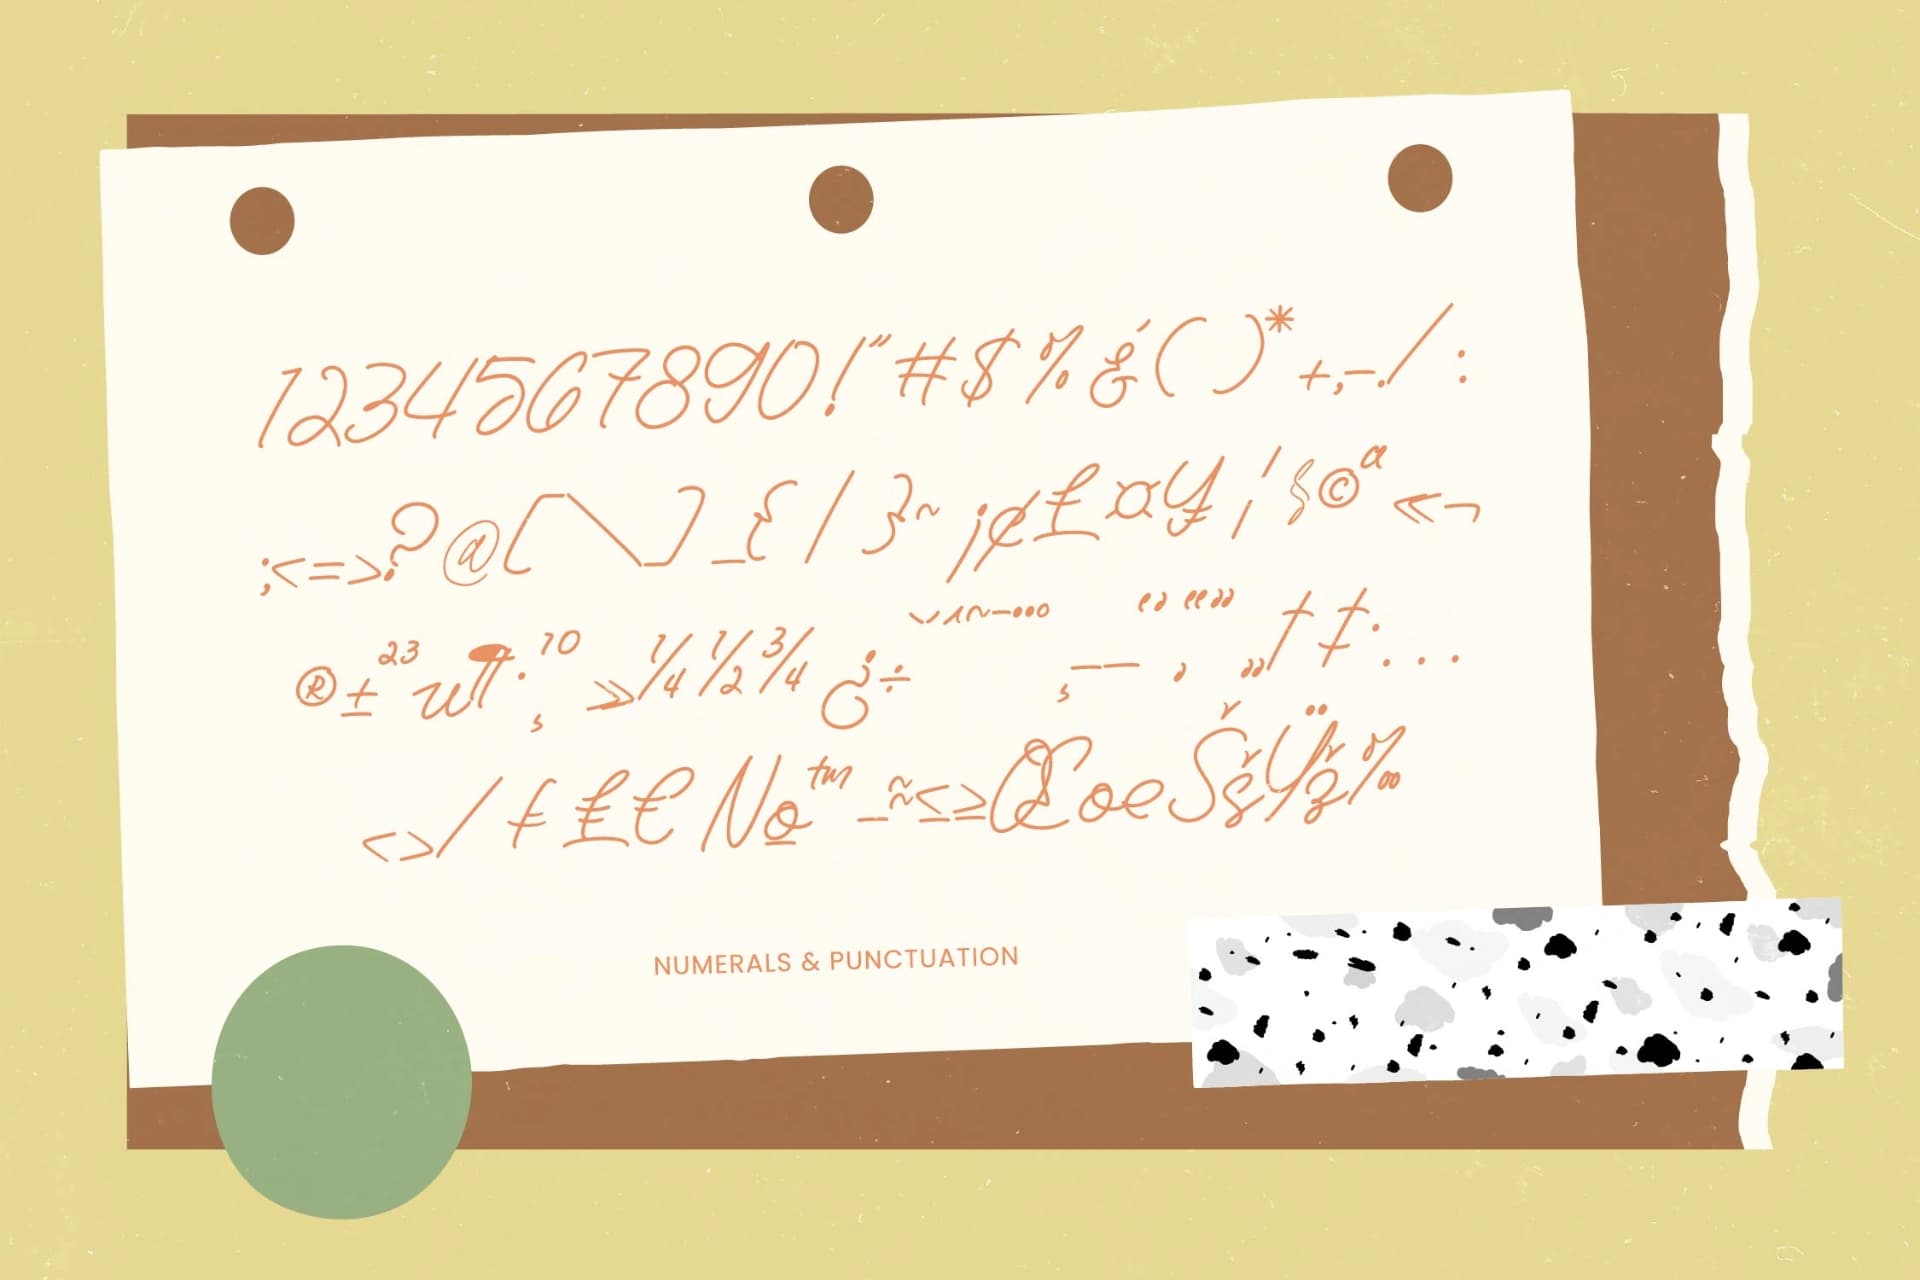 1234567890!"#$%&'()*+,-./:
;<=>?@[\]_{|}~¡¢£¤¥¦§©ª«¬
®±²³µ¶·¸¹º»¼½¾¿÷ˆˇ˘˜˙˚–—‘’‚“”„†‡•…
‹›⁄₣₤€№™−≈≤≥ŒœŠšŸž‰
NUMERALS & PUNCTUATION